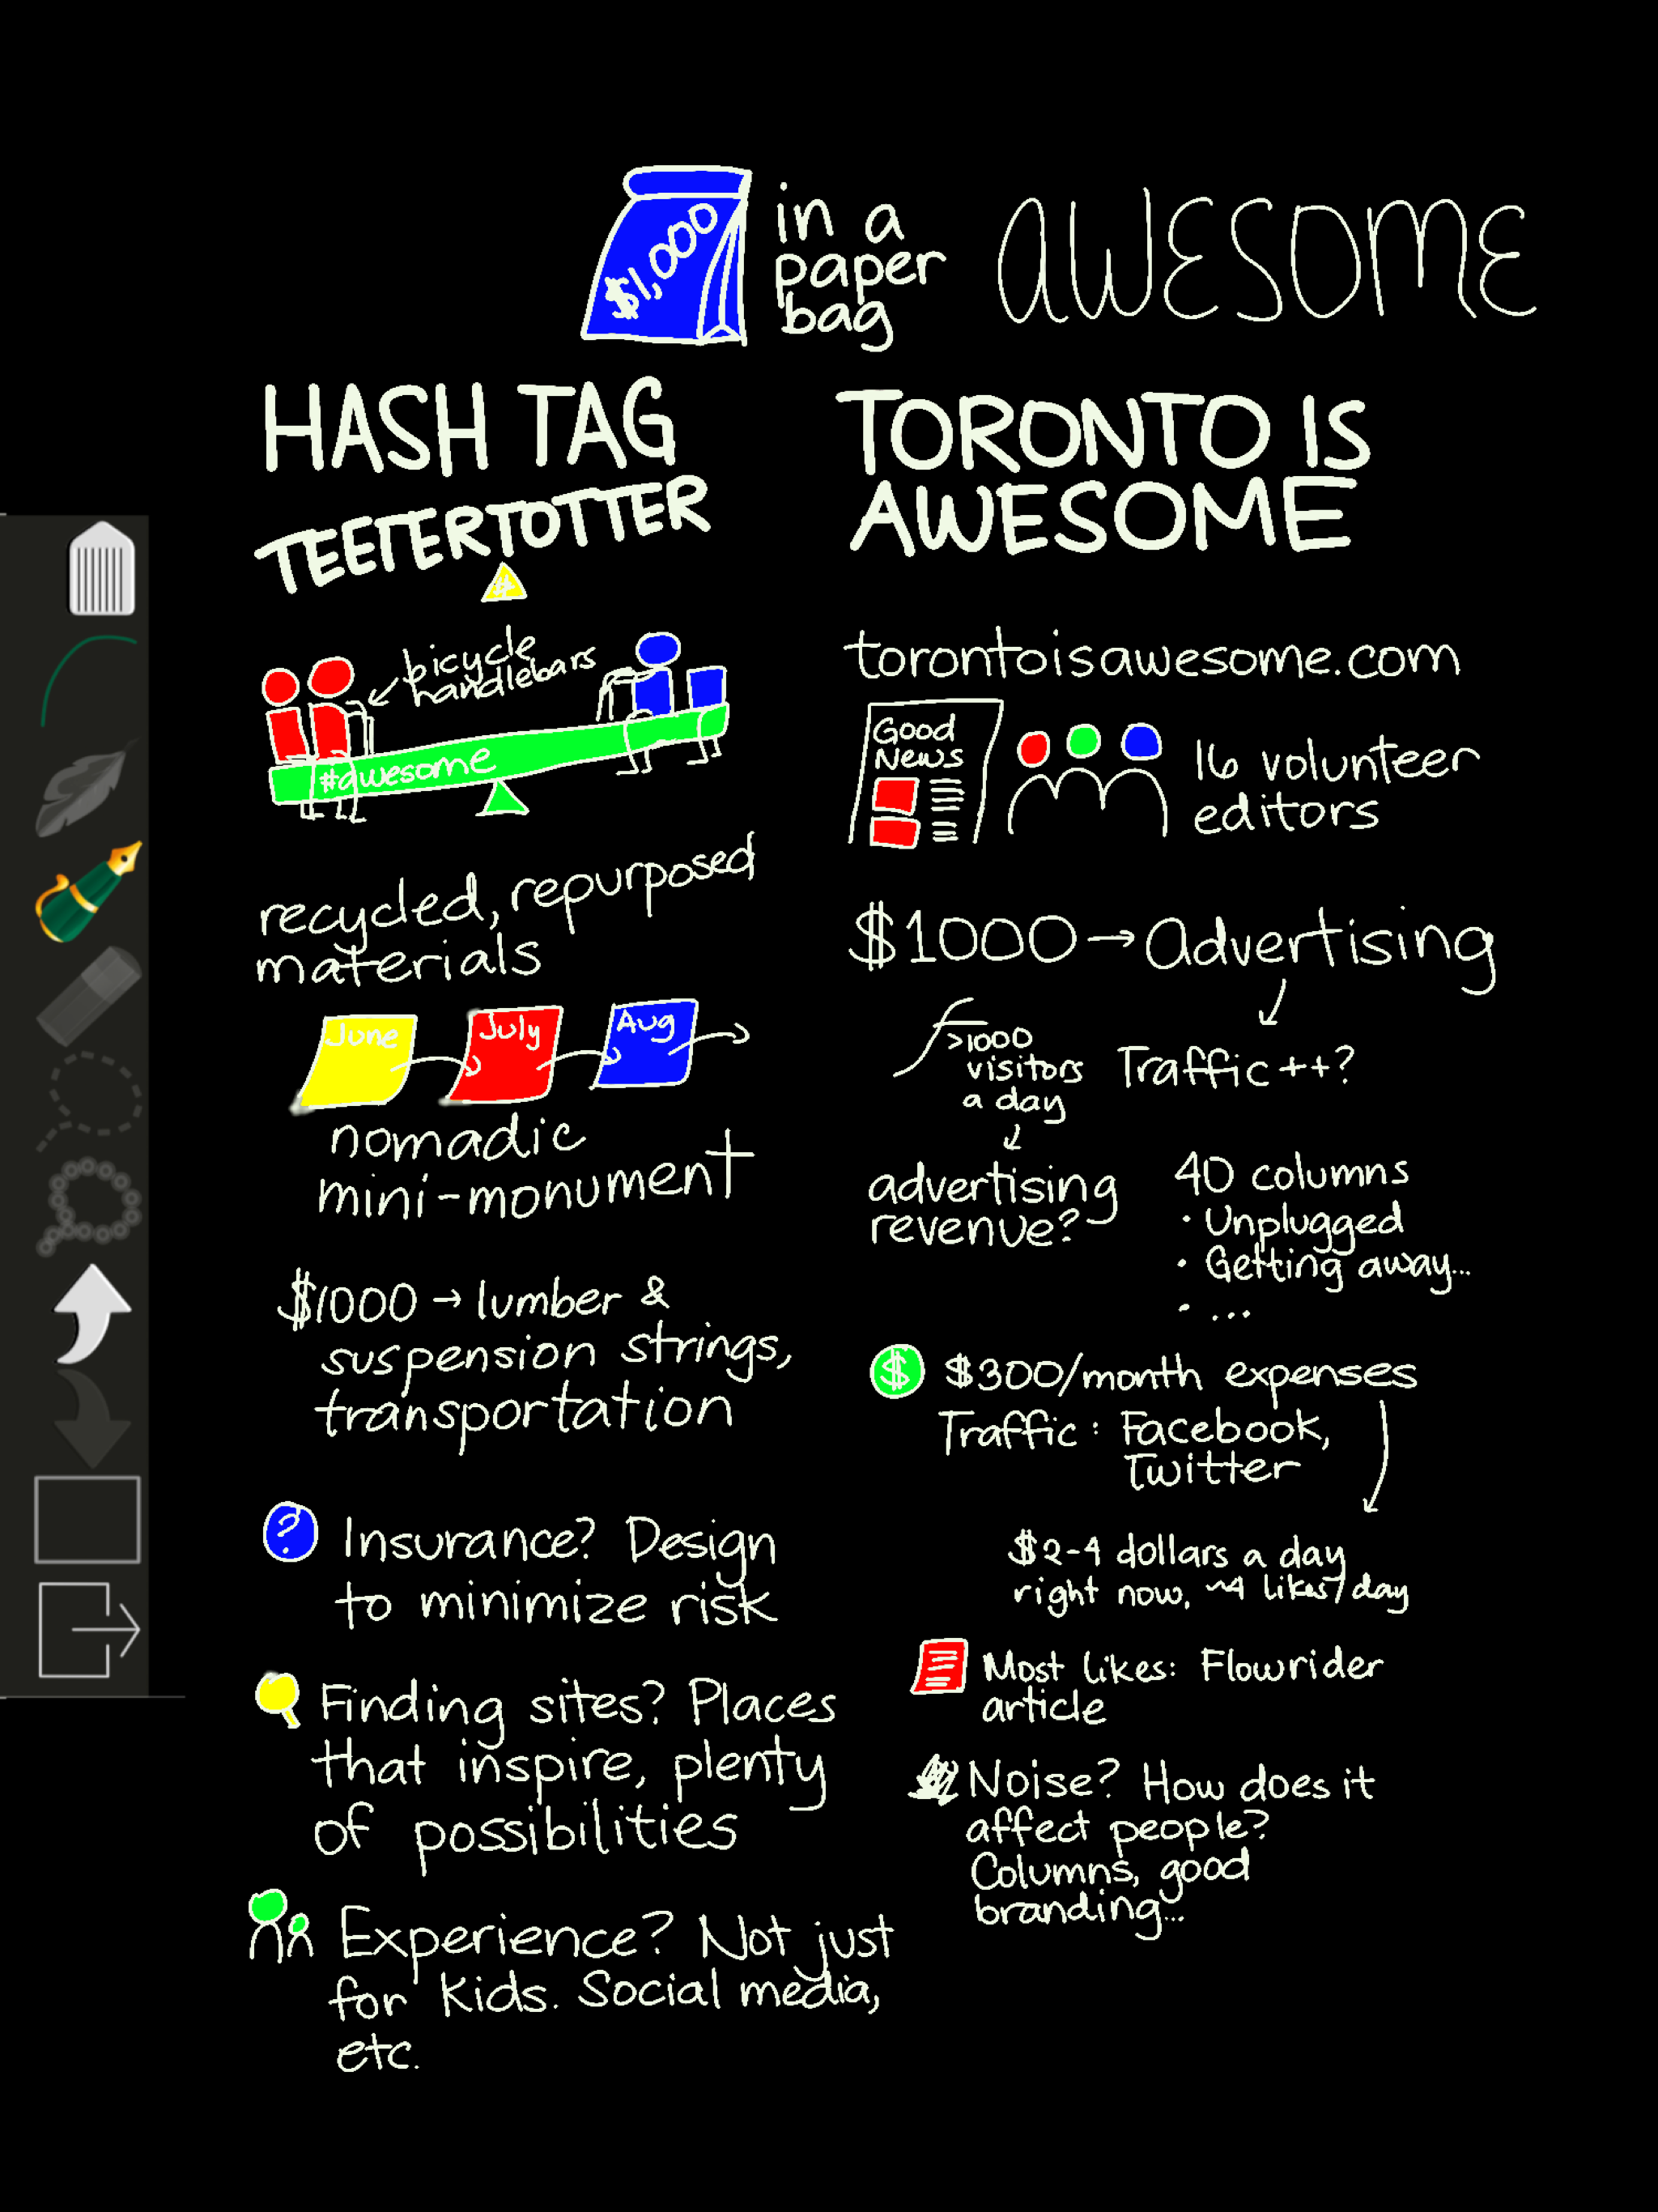 $1,000
in a
paper
bag
AWESOME
HASH TAG
TEETERTOTTER
#
bicycle
handlebars
#awesome
recycled, repurposed
materials
June
July
Aug
nomadic
mini-monument
$1000 → lumber &
suspension strings,
transportation
? Insurance? Design
to minimize risk
Finding sites? Places
that inspire, plenty
of possibilities
Experience? Not just
for kids. Social media,
etc.
TORONTO IS
AWESOME
torontoisawesome.com
Good
News
16 volunteer
editors
$1000 → Advertising
>1000
visitors
a day
Traffic ++?
advertising
revenue?
40 columns
• Unplugged
• Getting away...
• ...
$ $300/month expenses
Traffic: Facebook,
Twitter
$2-4 dollars a day
right now, ~4 likes/day
Most likes: Flowrider
article
Noise? How does it
affect people?
Columns, good
branding...